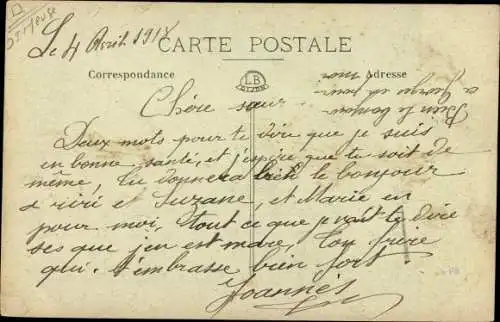 D Meuse
Le 4 Avril 1918
CARTE POSTALE
Correspondance
LB
DIJON
Adresse
Bien le bonjour
a Georges de pour
moi
Chère sœur
Deux mots pour te dire que je suis
en bonne santé, et j'espère que tu soit de
même, tu donnera bien le bonjour
a riri et Suzane, et Marie en
pour moi, tout ce que je vait te dire
ses que j'en est mare, Ton frère
qui t'embrasse bien fort.
Joannès